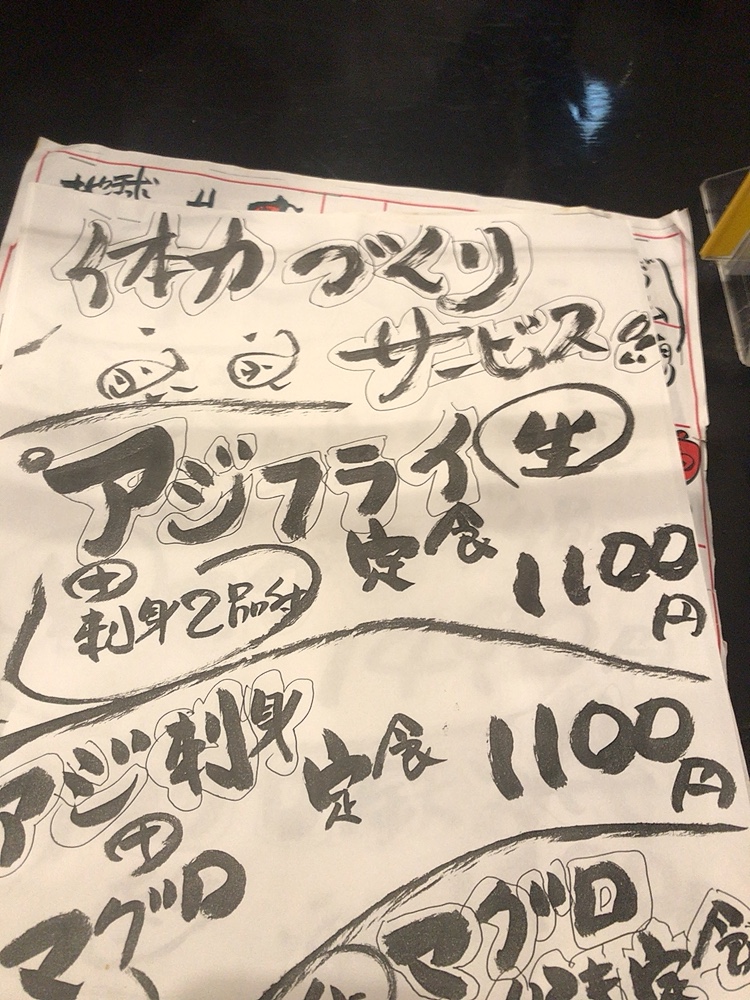 体力づくり
サービス
アジフライ 生
定食 1100円
+
刺身2品付
アジ刺身 定食 1100円
+
マグロ
マグロ
定食